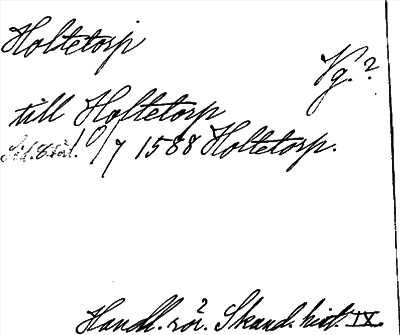 Holtetorp
Vg.?
till Holtetorp
10/7 1588 Holtetorp.
Handl. rör. Skand. hist. IX.